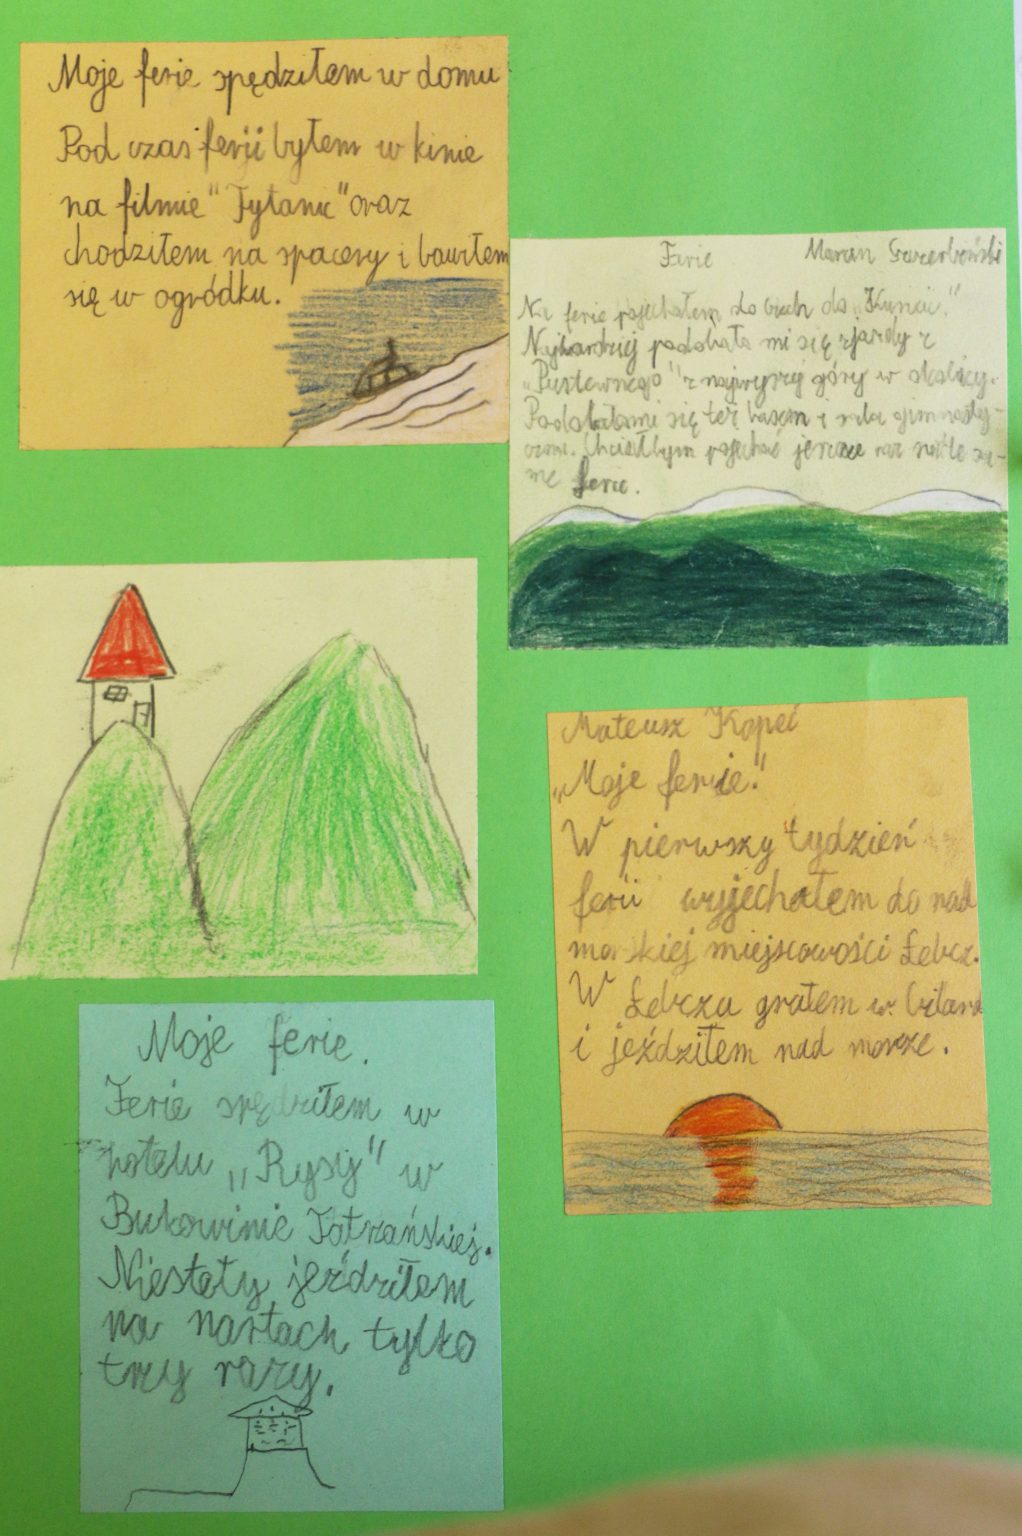 Moje ferie spędziłem w domu
Pod czas ferji byłem w kinie
na filmie "Tytanic" oraz
chodziłem na spacery i bawiłem
się w ogródku.
Ferie Marcin
Na ferie pojechałem do
Najbardziej podobała mi się zjazdy z
z najwyższej góry w okolicy.
Podobała mi się też basen i sala gimnasty-
czna. Chciałbym pojechać jeszcze raz na te sa-
me ferie.
Mateusz Kopeć
„Moje ferie."
W pierwszy tydzień
ferii wyjechałem do nad
morskiej miejscowości Łebcz.
W Łebczu grałem w bilard
i jeździłem nad morze.
Moje ferie.
Ferie spędziłem w
hotelu „Rysy" w
Bukowinie Tatrzańskiej.
Niestety jeździłem
na nartach tylko
trzy razy.